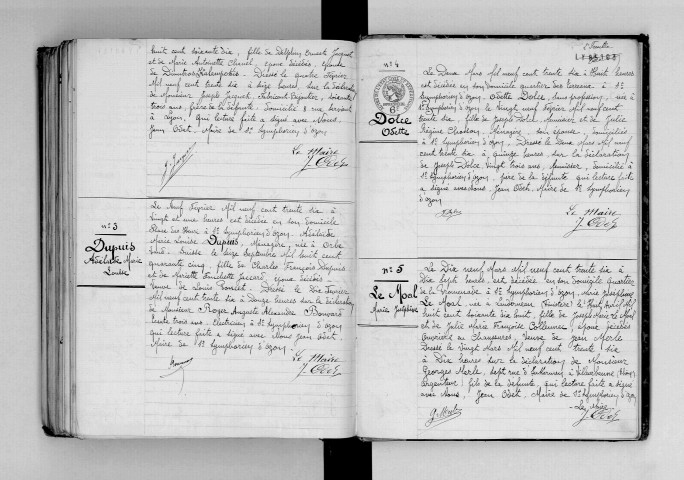 huit cent soixante dix, fille de Delphin Ernest Jacquet
et de Marie Antoinette Chanel, époux décédés, épouse
de Dimitros Dressé le quatre Février
Mil neuf cent trente dix à dix heures, sur la déclaration
de Monsieur Joseph Jacquet, Fabricant Bijoutier, soixante
trois ans, frère de la défunte. Domicilié 8 rue Servient
à Lyon, qui lecture faite a signé avec Nous.
Jean Odet, Maire de St Symphorien d'Ozon
Le Maire
J. Odet
n° 3
Dupuis
Adélaïde Marie
Louise
Le Neuf Février Mil neuf cent trente dix à
vingt et une heures est décédée en son domicile
Place du à St Symphorien d'Ozon, Adélaïde
Marie Louise Dupuis, Ménagère, née à Orbe
Suisse le seize Septembre Mil huit cent
quarante cinq, fille de Charles François Dupuis
et de Mariette époux décédés
Veuve de Louis Dressé le Dix Février
Mil neuf cent trente dix à Douze heures, sur la déclaration
de Monsieur Roger Auguste Alexandre
trente trois ans, Electricien à St Symphorien d'Ozon
qui lecture faite a signé avec Nous Jean Odet,
Maire de St Symphorien d'Ozon.
Le Maire
J. Odet
n° 4
Dolce
Odette
Le Deux Mars Mil neuf cent trente dix à heures
est décédée en son domicile quartier des à St
Symphorien d'Ozon Odette Dolce, sans profession, née à
St Symphorien d'Ozon le vingt neuf Février Mil neuf cent
trente dix, fille de Joseph Dolce, Menuisier et de Julie
Régine Ménagère, son épouse, domiciliés
à St Symphorien d'Ozon. Dressé le Deux Mars Mil neuf
cent trente dix à quinze heures, sur la déclaration
de Joseph Dolce vingt trois ans, Menuisier, domicilié
à St Symphorien d'Ozon, père de la défunte qui lecture faite
a signé avec Nous. Jean Odet, Maire de St Symphorien
d'Ozon
Le Maire
J. Odet
n° 5
Le Moal
Marie Joséphine
Le Dix neuf Mars Mil neuf cent trente dix à
Dix sept heures, est décédée en son domicile quartier
de la à St Symphorien d'Ozon, Marie Joséphine
Le Moal, née à (Finistère) le huit Avril Mil
huit cent soixante dix huit, fille de Joseph Marie Le Moal
et de Julie Marie Françoise époux décédés
Ouvrière en Chaussures, Veuve de Jean Merle
Dressé le Vingt Mars Mil neuf cent trente dix
à Dix heures sur la déclaration de Monsieur
Georges Merle, sept rue d'Inkermann à Villeurbanne (Rhône)
fils de la défunte, qui lecture faite a signé
avec Nous, Jean Odet, Maire de St Symphorien d'Ozon
G. Merle
Le Maire
J. Odet